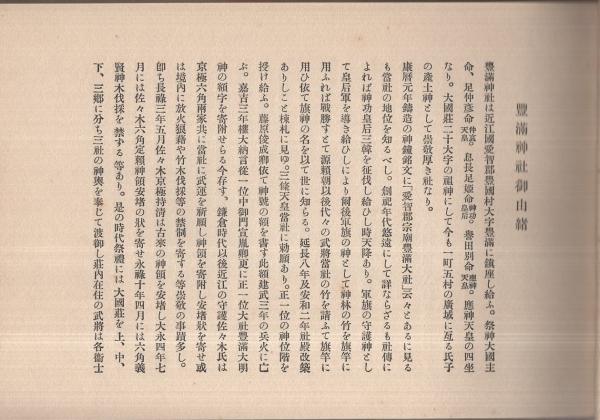 豐滿神社御由緒
豐滿神社は近江國愛智郡豐國村大字豐滿に鎭座し給ふ。祭神大國主
命、足仲彦命仲哀天皇。息長足姫命神功皇后。譽田別命應神天皇。應神天皇の四坐
なり。大國莊二十大字の祖神にして今も一町五村の廣域に亙る氏子
の產土神として崇敬厚き社なり。
康曆元年鑄造の神鐘銘文に「愛智郡宗廟豐滿大社」云々とあるに見る
も當社の地位を知るべし。創祀年代悠遠にして詳ならざるも社傳に
よれば神功皇后三韓を征伐し給ひし時天降あり。軍旗の守護神とし
て皇后軍を導き給ひしにより爾後軍旗の神として神林の竹を旗竿に
用ふれば戰勝すとて源賴朝以後代々の武將當社の竹を請ふて旗竿に
用ひ依て旗神の名を以て世に知らる。延長八年及安和二年社殿改築
ありしこと棟札に見ゆ。三條天皇當社に勅願あり。正一位の神位階を
授け給ふ。藤原俊成卿依て神號の額を書す此額建武三年の兵火に亡
ぶ。嘉吉三年權大納言從一位中御門宣胤卿更に正一位大社豐滿大明
神の額字を寄附せらる今存す、鎌倉時代以後近江の守護佐々木氏は
京極六角兩家共に當社に武運を祈願し神領を寄附し安堵狀を寄せ或
は境內に放火狼籍や竹木伐採等の禁制を寄する等崇敬の事蹟多し。
卽ち長祿三年五月佐々木京極持淸は古來の神領を安堵し大永四年七
月には佐々木六角定賴神領安堵の狀を寄せ永祿十年四月には六角義
賢神木伐採を禁ずる等あり。是の時代祭禮には大國莊を上、中、
下、三鄕に分ち三社の神輿を奉じて渡御し莊內在住の武將は各衞士